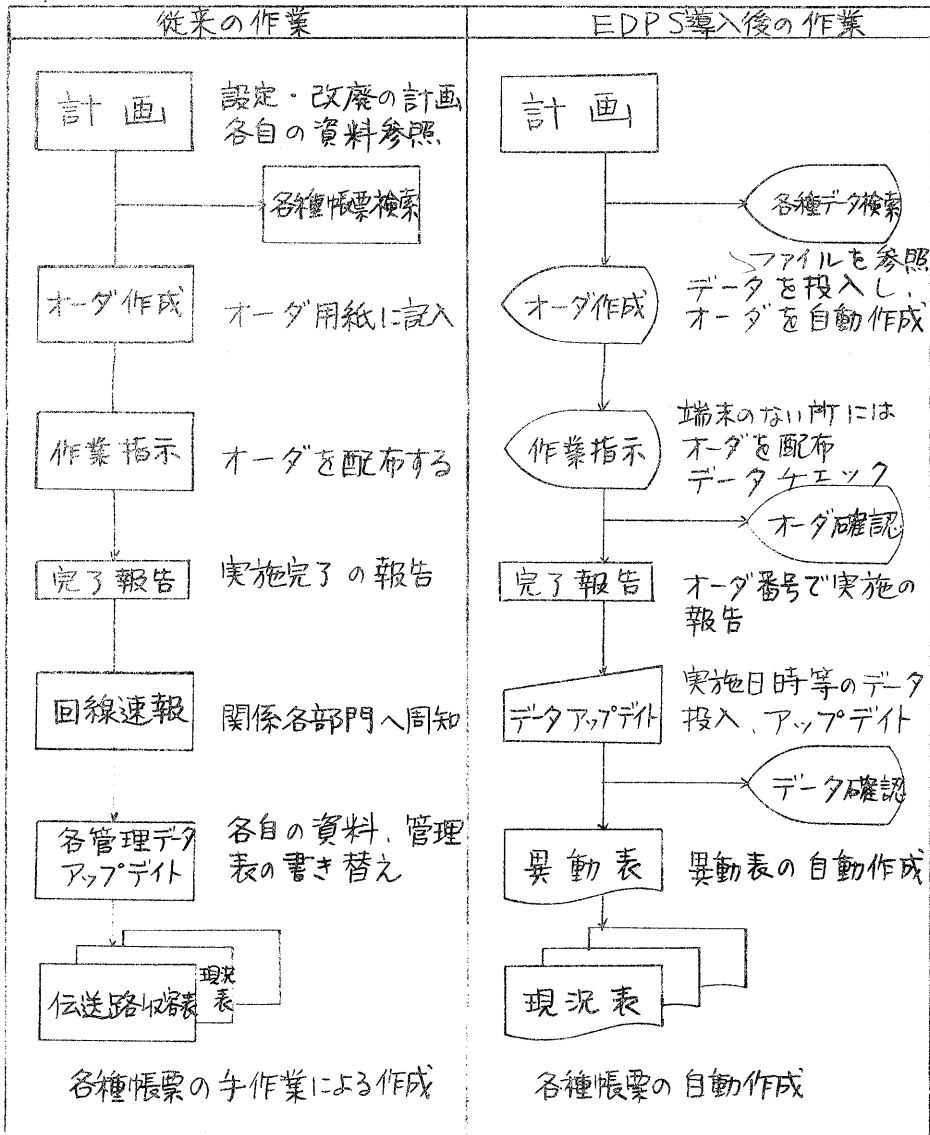 従来の作業
計画
設定・改廃の計画
各自の資料参照
各種帳票検索
オーダ作成
オーダ用紙に記入
作業指示
オーダを配布する
完了報告
実施完了の報告
回線速報
関係各部門へ周知
各管理データ
アップデイト
各自の資料、管理
表の書き替え
現況
表
伝送路収容表
各種帳票の手作業による作成
EDPS導入後の作業
計画
各種データ検索
ファイルを参照
オーダ作成
データを投入し、
オーダを自動作成
作業指示
端末のない所には
オーダを配布
データチェック
オーダ確認
完了報告
オーダ番号で実施の
報告
データアップデイト
実施日時等のデータ
投入、アップデイト
データ確認
異動表
異動表の自動作成
現況表
各種帳票の自動作成